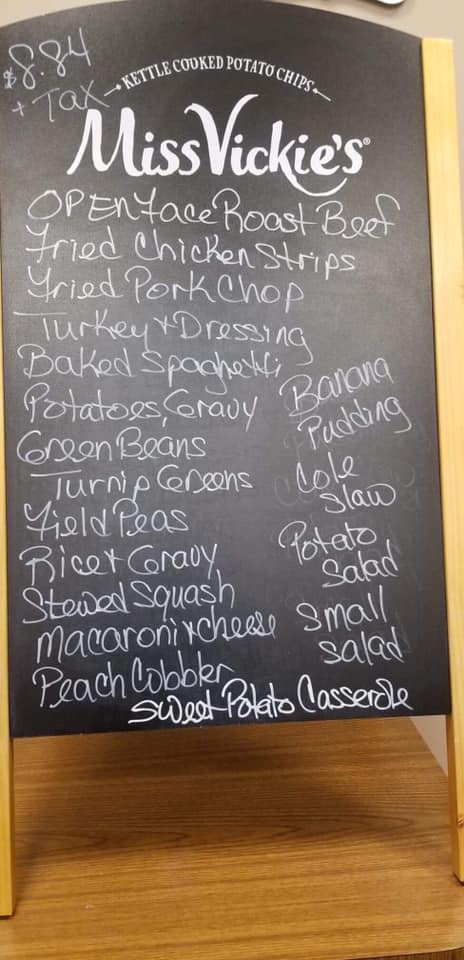 $8.84
+ Tax
KETTLE COOKED POTATO CHIPS
Miss Vickie's®
OPEN Face Roast Beef
Fried Chicken Strips
Fried Pork Chop
Turkey + Dressing
Baked Spaghetti
Potatoes, Gravy
Green Beans
Turnip Greens
Field Peas
Rice + Gravy
Stewed Squash
Macaroni + cheese
Peach Cobbler
Banana
Pudding
Cole
Slaw
Potato
Salad
Small
salad
Sweet Potato Casserole